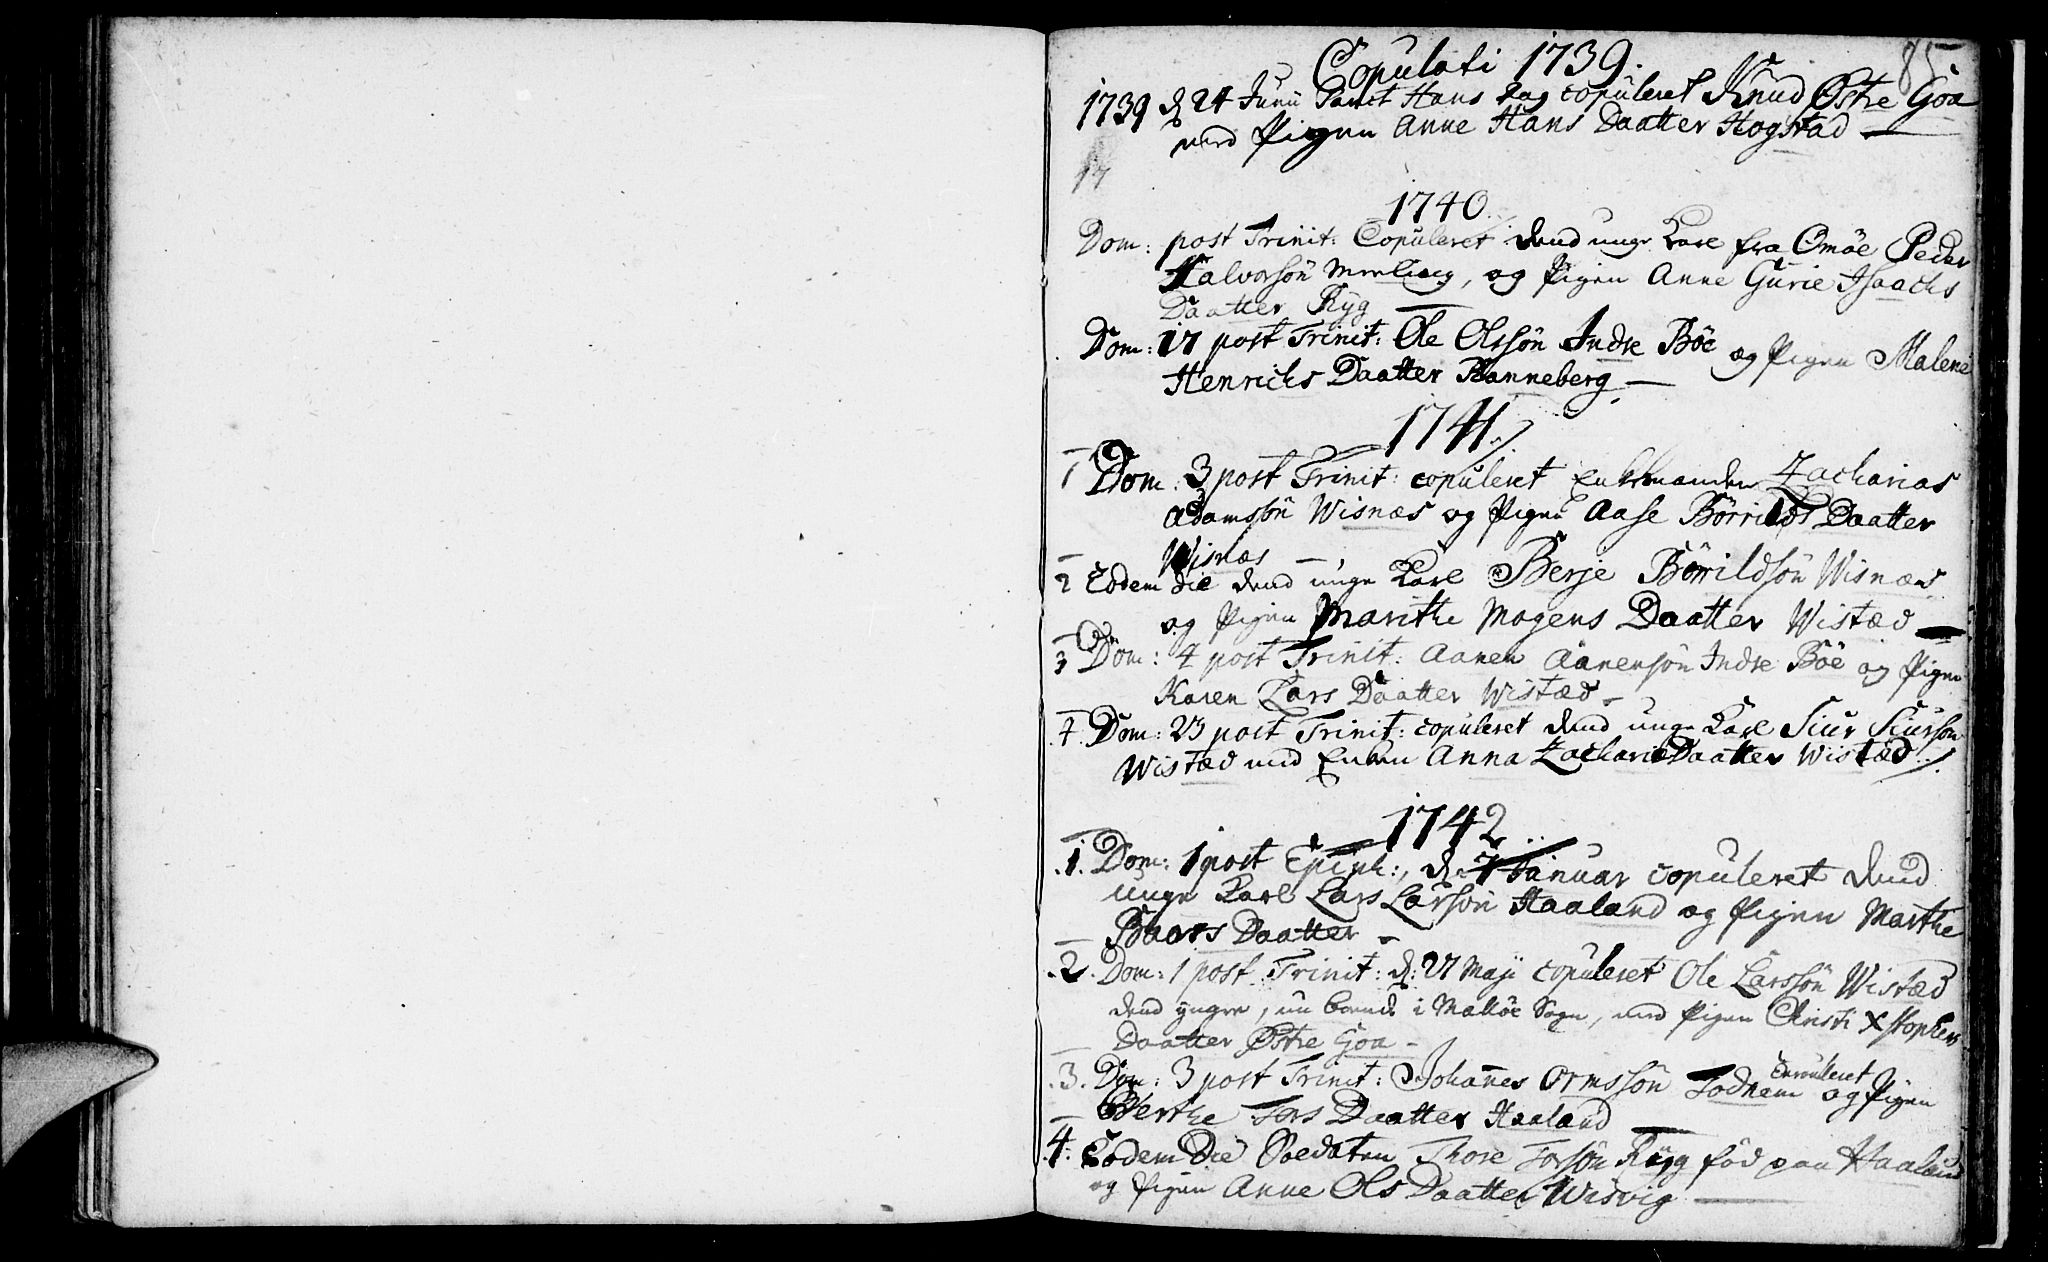 85
Copulati 1739.
1739 d 24 Junii Sanct Hans Dag copuleret Knud Østre Goa
med Pigen Anne Hans Daatter Hogstad
17
1740.
Dom: post Trinit: Copuleret dend unge Karl fra Omöe Peder
Halvorsön Meeling, og Pigen Anne Gurie Isaachs
Daatter Ryg
Dom: 17 post Trinit: Ole Olssön Indre Böe og Pigen Malene
Henrichs Daatter Ranneberg
1741.
1 Dom. 3 post Trinit: copuleret Enkemanden Zacharias
Adamssön Wisnæs og Pigen Aase Börrilds Daatter
Wisnæs
2 Eodem die dend unge Karl Berje Börrildsön Wisnæs
og Pigen Marithe Mogens Daatter Wistæd
3 Dom: 4 post Trinit: Aanen Aanensön Indre Böe og Pigen
Karen Lars Daatter Wistæd
4. Dom: 23 post Trinit: copuleret dend unge Karl Siur Siursön
Wistæd med Enken Anna Zacharie Daatter Wistæd
1742
.1. Dom: 1 post Epiph:, d. 7 Januar copuleret dend
unge Karl Lars Larsön Haaland og Pigen Marthe
Baars Daatter
.2. Dom: 1 post Trinit: d: 27 Maji copuleret Ole Larssön Wistæd
dend yngre, nu boende i Mællöe Sogn, med Pigen Christi Xstophers
Daatter Østre Goa
.3. Dom: 3 post Trinit: Johannes Ormssön Todnem Copuleret og Pigen
Berthe Tors Daatter Haaland
.4. Eodem Die Soldaten Thore Torsön Rÿg föd paa Haaland
og Pigen Anne Ols Daatter Wisvig